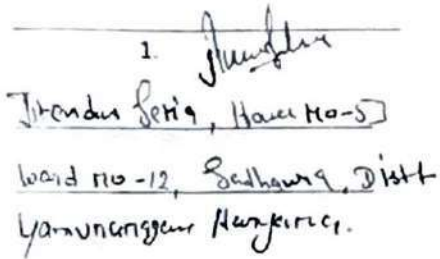 1.
Jitender Seria, House No-57
Ward No-12, Sadhaura, Distt
Yamunanagar Haryana.